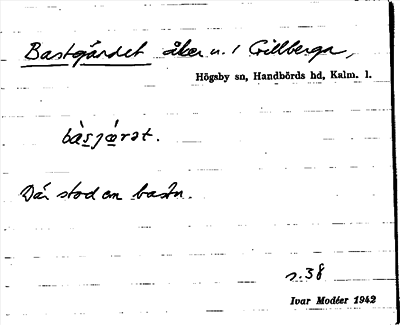 Bastgärdet åker u. / Gillberga,
Högsby sn, Handbörds hd, Kalm. l.
Där stod en bastu.
s.38
Ivar Modéer 1942